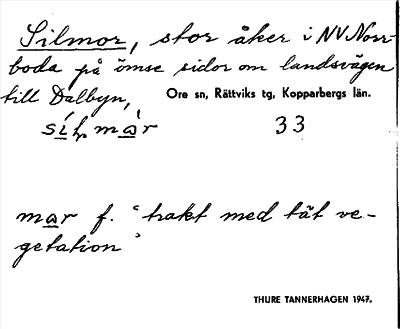 Silmor, stor åker i NV Norr-
boda på ömse sidor om landsvägen
till Dalbyn, Ore sn, Rättviks tg, Kopparbergs län.
33
mar f. "trakt med tät ve-
getation"
THURE TANNERHAGEN 1947.